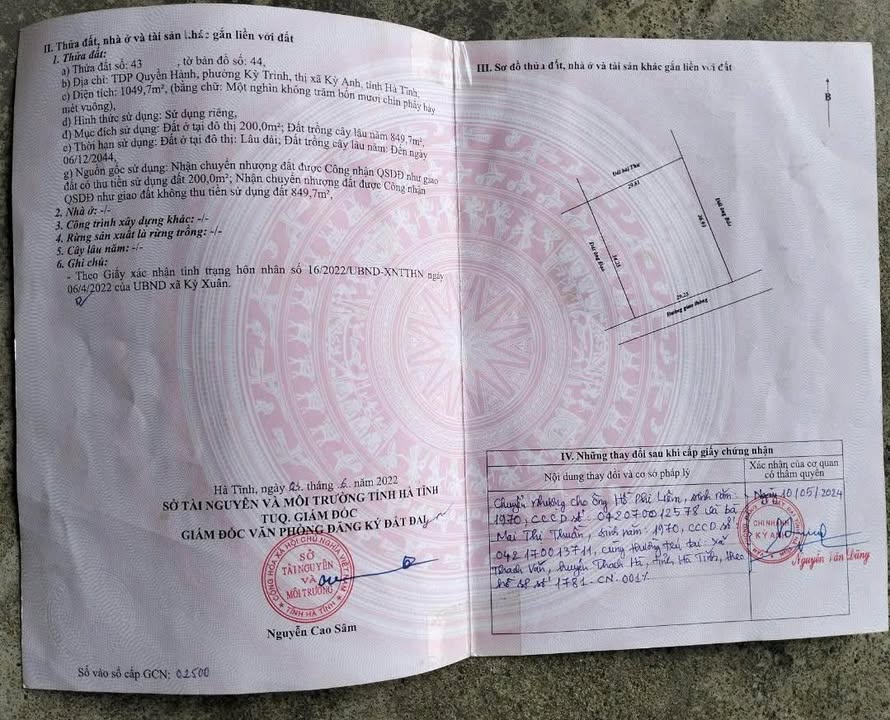 II. Thửa đất, nhà ở và tài sản khác gắn liền với đất
1. Thửa đất:
a) Thửa đất số: 43 , tờ bản đồ số: 44,
b) Địa chỉ: TDP Quyền Hành, phường Kỳ Trinh, thị xã Kỳ Anh, tỉnh Hà Tĩnh,
c) Diện tích: 1049,7m², (bằng chữ: Một nghìn không trăm bốn mươi chín phẩy bảy
mét vuông),
d) Hình thức sử dụng: Sử dụng riêng,
đ) Mục đích sử dụng: Đất ở tại đô thị 200,0m²; Đất trồng cây lâu năm 849,7m²,
e) Thời hạn sử dụng: Đất ở tại đô thị: Lâu dài; Đất trồng cây lâu năm: Đến ngày
06/12/2044,
g) Nguồn gốc sử dụng: Nhận chuyển nhượng đất được Công nhận QSDĐ như giao
đất có thu tiền sử dụng đất 200,0m²; Nhận chuyển nhượng đất được Công nhận
QSDĐ như giao đất không thu tiền sử dụng đất 849,7m²,
2. Nhà ở: -/-
3. Công trình xây dựng khác: -/-
4. Rừng sản xuất là rừng trồng: -/-
5. Cây lâu năm: -/-
6. Ghi chú:
- Theo Giấy xác nhận tình trạng hôn nhân số 16/2022/UBND-XNTTHN ngày
06/4/2022 của UBND xã Kỳ Xuân.
Hà Tĩnh, ngày tháng 6 năm 2022
SỞ TÀI NGUYÊN VÀ MÔI TRƯỜNG TỈNH HÀ TĨNH
TUQ. GIÁM ĐỐC
GIÁM ĐỐC VĂN PHÒNG ĐĂNG KÝ ĐẤT ĐAI
CỘNG HÒA XÃ HỘI CHỦ NGHĨA VIỆT NAM
SỞ
TÀI NGUYÊN
VÀ
MÔI TRƯỜNG
TỈNH HÀ TĨNH
Nguyễn Cao Sâm
Số vào sổ cấp GCN: 02500
III. Sơ đồ thửa đất, nhà ở và tài sản khác gắn liền với đất
B
Đất bà Thư
29.81
Đất ông Bắc
36.83
Đất ông Đạo
34.21
29.25
Đường giao thông
IV. Những thay đổi sau khi cấp giấy chứng nhận
Nội dung thay đổi và cơ sở pháp lý
Xác nhận của cơ quan
có thẩm quyền
Chuyển nhượng cho ông Hồ Phi Liêm, sinh năm:
1970, CCCD số: 042070012578 và bà
Mai Thị Thuần, sinh năm: 1970, CCCD số
042170013711, cùng thường trú tại: xã
Thạch Văn, huyện Thạch Hà, tỉnh Hà Tĩnh, theo
hồ sơ số 1781-CN.001/.
Ngày 10/05/2024
CHI NHÁNH
KỲ ANH
Nguyễn Văn Đăng